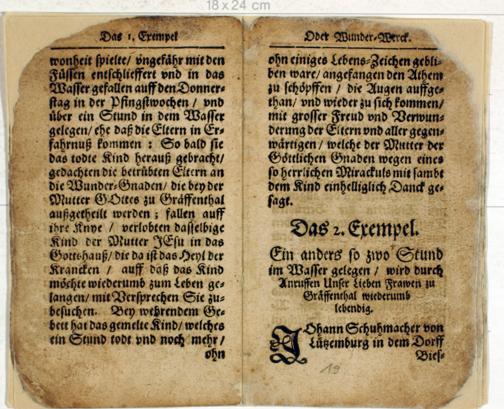 18 x 24 cm
Das 1. Exempel
wonheit spielte/ vngefähr mit den
Füssen entschlieffert vnd in das
Wasser gefallen auff den Donner-
stag in der Pfingstwochen / vnd
über ein Stund in dem Wasser
gelegen/ ehe daß die Eltern in Er-
fahrnuß kommen : So bald sie
das todte Kind herauß gebracht/
gedachten die betrübten Eltern an
die Wunder-Gnaden/ die bey der
Mutter GOttes zu Gräffenthal
außgetheilt werden ; fallen auff
ihre Knye / verlobten dasselbige
Kind der Mutter JEsu in das
Gottshauß/ die da ist das Heyl der
Krancken / auff daß das Kind
möchte wiederumb zum Leben ge-
langen/ mit Versprechen Sie zu-
besuchen. Bey wehrendem Ge-
bett hat das gemelte Kind/ welches
ein Stund todt vnd noch mehr/
ohn
Oder Wunder-Werck.
ohn einiges Lebens-Zeichen gebli-
ben ware/ angefangen den Athem
zu schöpffen / die Augen auffge-
than/ vnd wieder zu sich kommen/
mit grosser Freud vnd Verwun-
derung der Eltern vnd aller gegen-
wärtigen / welche der Mutter der
Göttlichen Gnaden wegen eines
so herrlichen Mirackuls mit sambt
dem Kind einhelliglich Danck ge-
sagt.
Das 2. Exempel.
Ein anders so zwo Stund
im Wasser gelegen / wird durch
Anruffen Unser Lieben Frawen zu
Gräffenthal wiederumb
lebendig.
JOhann Schuhmacher von
Lützemburg in dem Dorff
Bies-
19